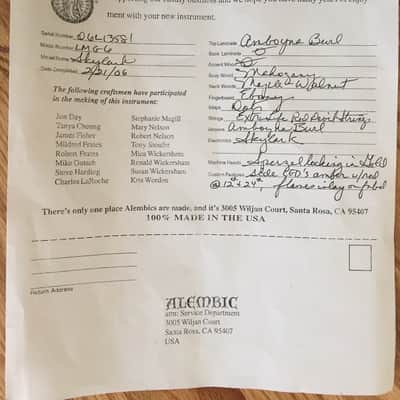 supporting our family business and we hope you have many years of enjoy-
ment with your new instrument.
Serial Number: 06L13581
Model Number: LMG6
Model Name: Skylark
Date Completed: 2/21/06
The following craftsmen have participated
in the making of this instrument:
Jon Day Stephanie Magill
Tanya Cheong Mary Nelson
James Fisher Robert Nelson
Mildred Frates
Robert Frates Mica Wickersham
Mike Gutsch Ronald Wickersham
Steve Harding Susan Wickersham
Charles LaRoche Kris Worden
Top Laminate: Amboyna Burl
Back Laminate:
Accent Wood:
Body Wood: Mahogany
Neck Woods: Maple & Walnut
Fingerboard: Ebony
Inlays: Dots
Strings:
Amboyna Burl
Electronics: Skylark
Machine Heads: Sperzel locking in Gold
Custom Features: side LED's amber w/red
@ 12 & 24, flames inlay on
There's only one place Alembics are made, and it's 3005 Wiljan Court, Santa Rosa, CA 95407
100% MADE IN THE USA
Return Address
ALEMBIC
attn: Service Department
3005 Wiljan Court
Santa Rosa, CA 95407
USA